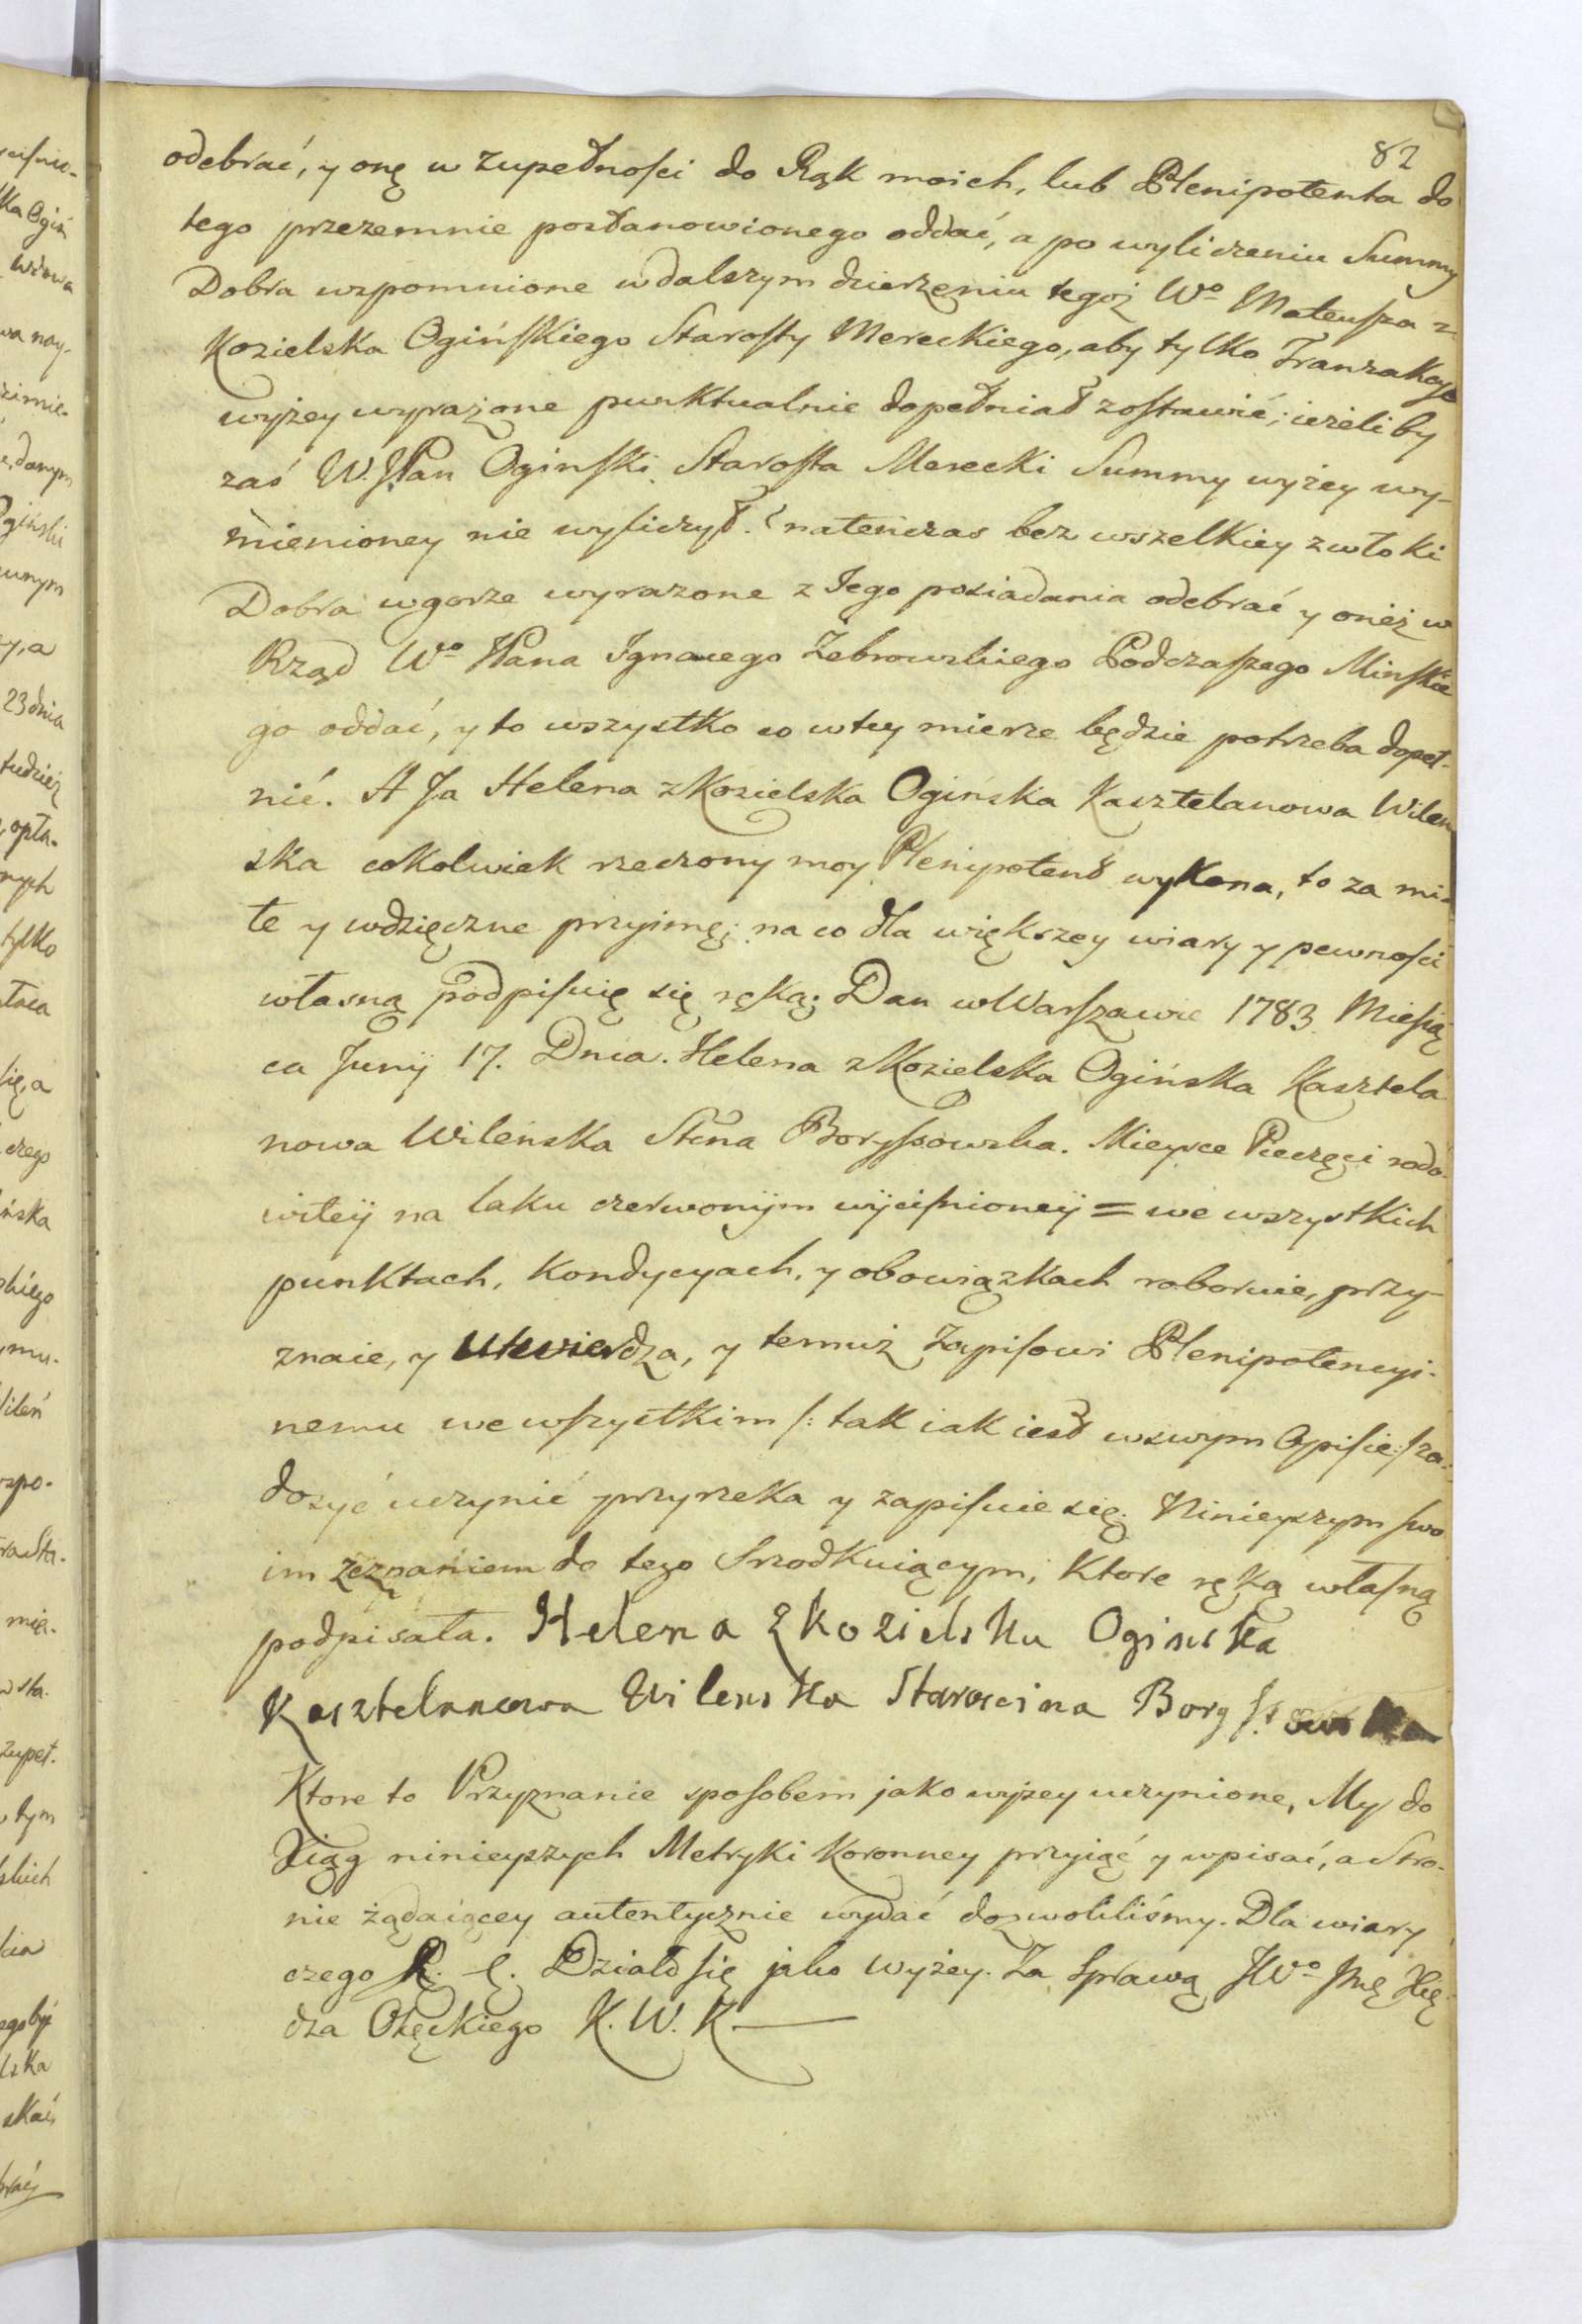 82
odebrać, y onę w zupełności do Rąk moich, lub Plenipotenta do
tego przezemnie postanowionego oddać, a po wyliczeniu Summy
Dobra wspomnione w dalszym dzierżeniu tegoż Wo Mateusza z
Kozielska Ogińskiego Starosty Mereckiego, aby tylko Tranzakcye
wyżey wyrażone punktualnie dopełniał zostawić; ieżeliby
zaś W. JPan Oginski Starosta Merecki Summy wyżey wy-
mienioney nie wyliczył. natenczas bez wszelkiey zwłoki
Dobra w gorze wyrazone z Jego posiadania odebrać y onéż w
Rząd Wo JPana Ignacego Żebrowskiego Podczaszego Minskie
go oddać, y to wszystko co w tey mierze będzie potrzeba dopeł-
nić. A Ja Helena z Kozielska Ogińska Kasztelanowa Wilen
ska cokolwiek rzeczony moy Plenipotent wykona, to za mi-
łe y wdzięczne przyimę; na co dla większey wiary y pewności
własną podpisuię się ręką; Dan w Warszawie 1783. Miesią
ca Junij 17. Dnia. Helena z Kozielska Ogińska Kasztela
nowa Wileńska Stćna Boryssowska. Mieysce Pieczęci rodo-
witeÿ na laku czerwonÿm wÿcisnioneÿ = we wszystkich
punktach, kondycyach, y obowiązkach roboruie, przy-
znaie, y utwierdza, y temuż Zapisowi Plenipotencyi-
nemu we wszystkim /: tak iak iest w swym Opisie :/ za-
dosyć uczynić przyrzeka y zapisuie się. Ninieyszym swo
im zeznaniem do tego Srzodkuiącym, Ktore ręką własną
podpisała. Helena z Kozielsku Oginska
Kasztelanowa Wilenska Staroscina Boryssowska
Ktore to Przyznanie sposobem jako wyżey uczynione, My do
Xiąg ninieyszych Metryki Koronney przyiąć y wpisać, a Stro-
nie żądaiącey autentycznie wydać dozwoliliśmy. Dla wiary
czego &. &. Działo się jako wyżey. Za Sprawą JWo Jmę Xię
dza Okęckiego K. W. K.